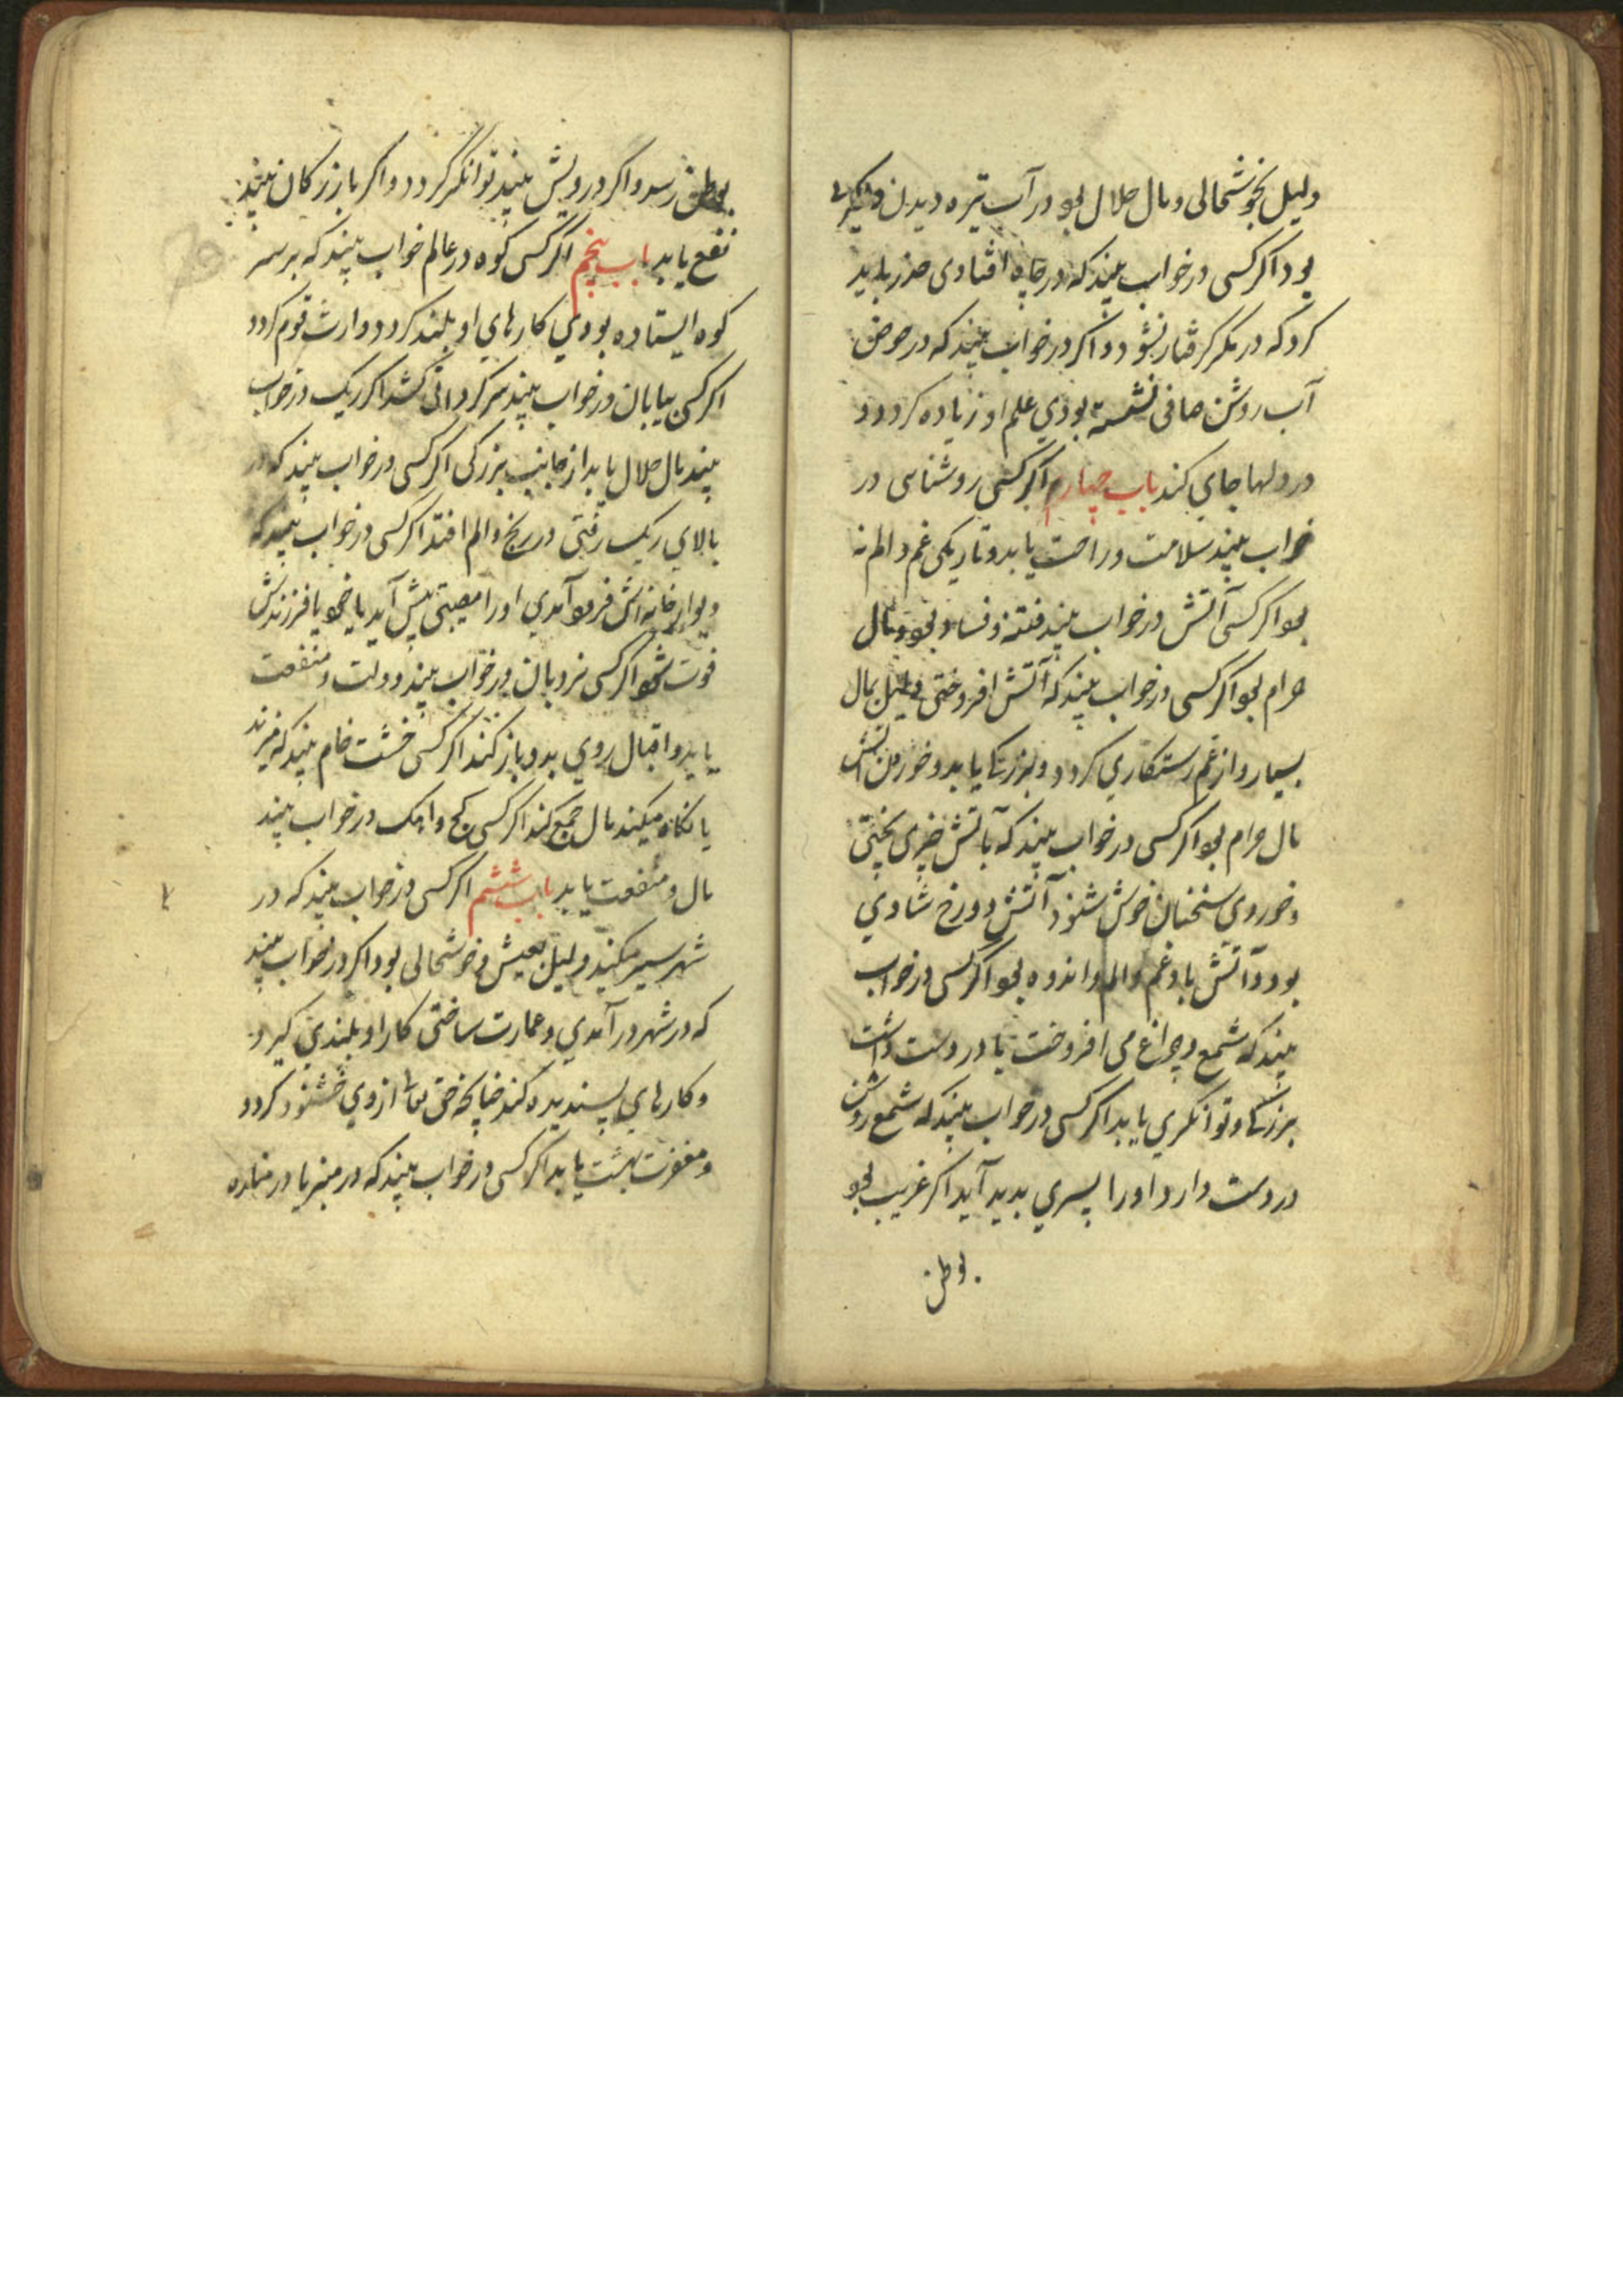 دلیل بخوشحالی و مال حلال بود در آب تیره دیدن
بود اگر کسی در خواب بیند که در چاه افتادی حذر باید
کرد که در مکر گرفتار نشود و اگر در خواب بیند که در حوض
آب روشن صافی نشسته بودی علم او زیاده گردد و
در دلها جای کند باب چهارم اگر کسی روشنایی در
خواب بیند سلامت و راحت یابد و تاریکی غم و الم نه
بود اگر کسی آتش در خواب بیند فتنه و فساد بود و مال
حرام بود اگر کسی در خواب بیند که آتش افروختی دلیل بمال
بسیار و از غم رستکاری گردد و بزرگی یابد و خوردن آتش
مال حرام بود اگر کسی در خواب بیند که بآتش چیزی پختی
و خوردی سخنان خوش شنود آتش دوزخ شادی
بود و آتش با دود غم و الم و اندوه بود اگر کسی در خواب
بیند که شمع و چراغ می افروخت یا در دست داشت
بزرگی و توانگری یابد اگر کسی در خواب بیند که شمع روشن
در دست دارد او را پسری بدید آید اگر غریب بود
بوطن
بوطن رسد و اگر درویش بیند توانگر گردد و اگر بازرکان بیند
نفع یابد باب پنجم اگر کسی کوه در عالم خواب بیند که بر سر
کوه ایستاده بودی کارهای او بلند گردد و وارث قوم گردد
اگر کسی بیابان در خواب بیند سرگردانی کشد اگر ریگ در خواب
بیند مال حلال یابد از جانب بزرگی اگر کسی در خواب بیند که در
بالای ریگ رفتی در رنج و الم افتد اگر کسی در خواب بیند که
دیوار خانه اش فرود آمدی او را مصیبتی پیش آید یا خود یا فرزندش
فوت شود اگر کسی نردبان در خواب بیند دولت و منفعت
یابد و اقبال روی بدو باز کند اگر کسی خشت خام بیند که میزند
یا نگاه میکند مال جمع کند اگر کسی گچ و آهک در خواب بیند
مال و منفعت یابد باب ششم اگر کسی در خواب بیند که در
شهر سیر میکند دلیل بعیش و خوشحالی بود اگر در خواب بیند
که در شهر در آمدی و عمارت ساختی کار او بلندی گیرد
و کارهای پسندیده کند چنانچه حق تعالی از وی خشنود گردد
و مغفرت بهشت یابد اگر کسی در خواب بیند که در منبر یا در مناره